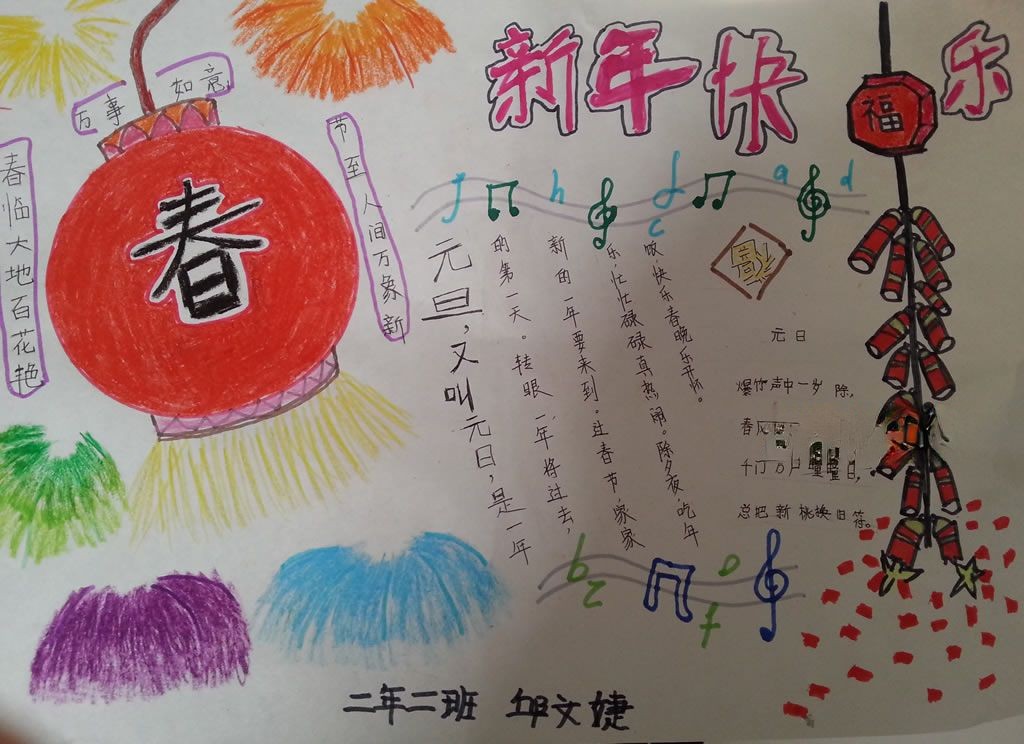 新年快乐
福
万事如意
春
春临大地百花艳
节至人间万象新
元旦，又叫元日，是一年
的第一天。转眼一年将过去，
新的一年要来到。过春节家家
乐忙忙碌碌真热闹。除夕夜，吃年
饭快乐春晚乐开怀。
元日
爆竹声中一岁除，
春风
千门万户曈曈日，
总把新桃换旧符。
二年二班 邱文婕